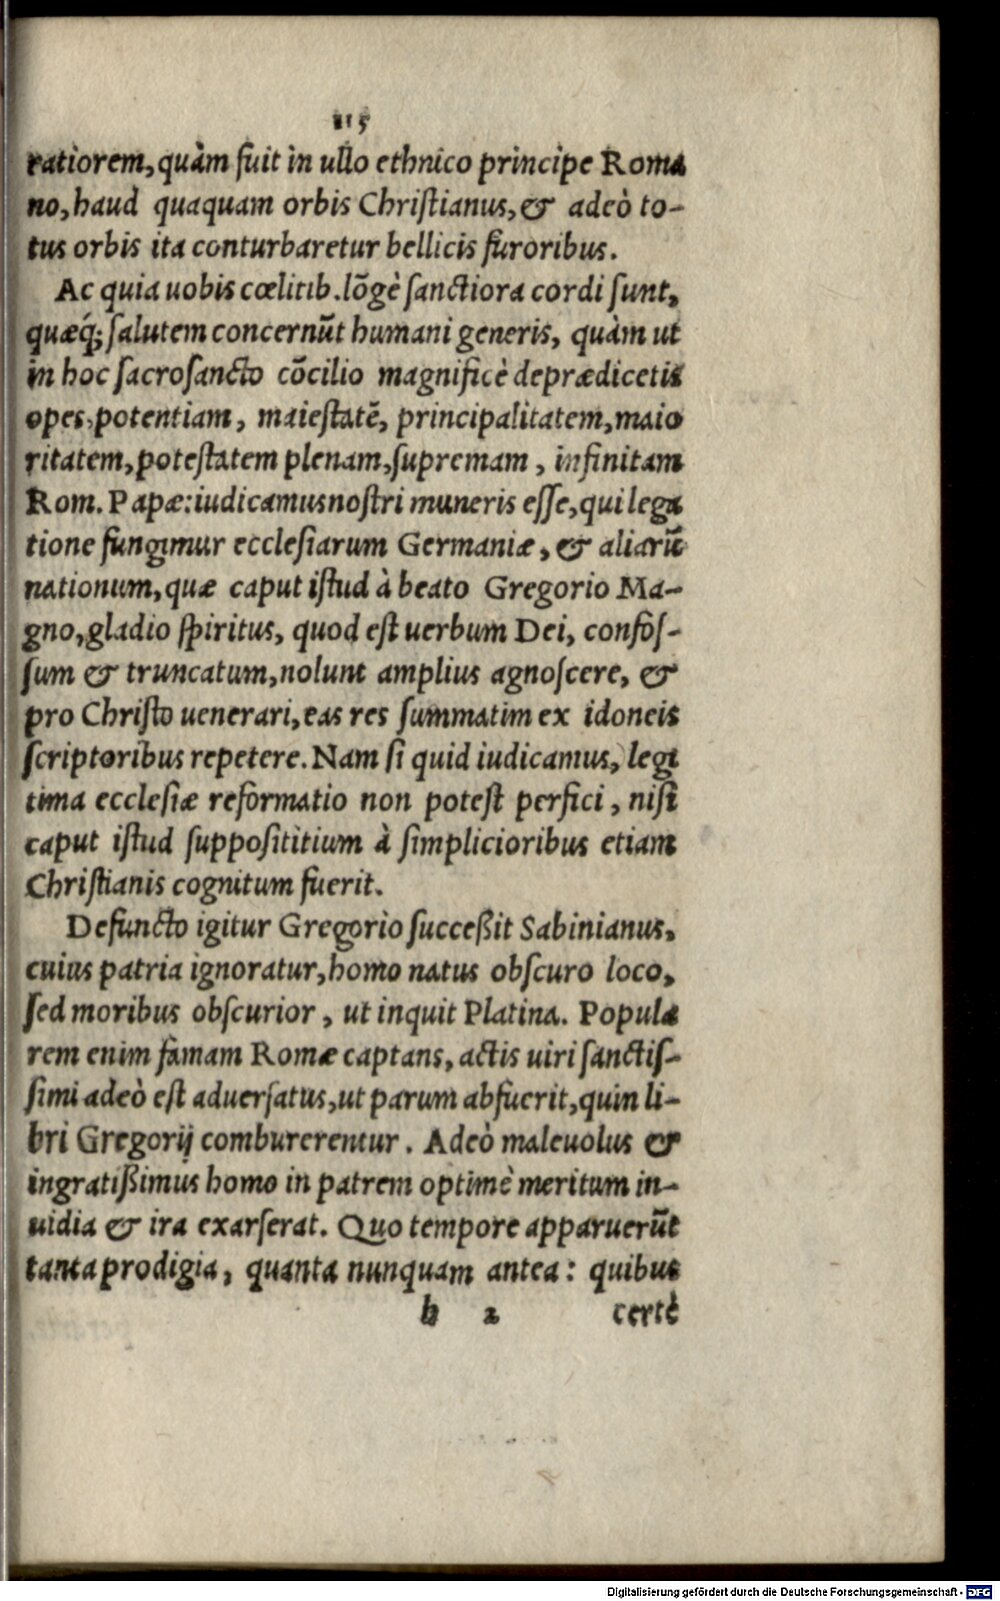 115
ratiorem, quàm fuit in ullo ethnico principe Roma
no, haud quaquam orbis Chriſtianus, & adeò to-
tus orbis ita conturbaretur bellicis furoribus.
Ac quia uobis cœlitib. lõgè ſanctiora cordi ſunt,
quæq́; ſalutem concernũt humani generis, quàm ut
in hoc ſacroſancto cõcilio magnificè deprædicetis
opes, potentiam, maieſtatẽ, principalitatem, maio
ritatem, poteſtatem plenam, ſupremam, infinitam
Rom. Papæ: iudicamus noſtri muneris eſſe, qui lega
tione fungimur eccleſiarum Germaniæ, & aliarũ
nationum, quæ caput iſtud à beato Gregorio Ma-
gno, gladio ſpiritus, quod eſt uerbum Dei, confoſ-
ſum & truncatum, nolunt amplius agnoſcere, &
pro Chriſto uenerari, eas res ſummatim ex idoneis
ſcriptoribus repetere. Nam ſi quid iudicamus, legi
tima eccleſiæ reformatio non poteſt perfici, niſi
caput iſtud ſuppoſititium à ſimplicioribus etiam
Chriſtianis cognitum fuerit.
Defuncto igitur Gregorio ſucceßit Sabinianus,
cuius patria ignoratur, homo natus obſcuro loco,
ſed moribus obſcurior, ut inquit Platina. Popula
rem enim famam Romæ captans, actis uiri ſanctiſ-
ſimi adeò eſt aduerſatus, ut parum abfuerit, quin li-
bri Gregorij comburerentur. Adeò maleuolus &
ingratißimus homo in patrem optimè meritum in-
uidia & ira exarſerat. Quo tempore apparuerũt
tanta prodigia, quanta nunquam antea: quibus
h 2 certè
Digitalisierung gefördert durch die Deutsche Forschungsgemeinschaft - DFG